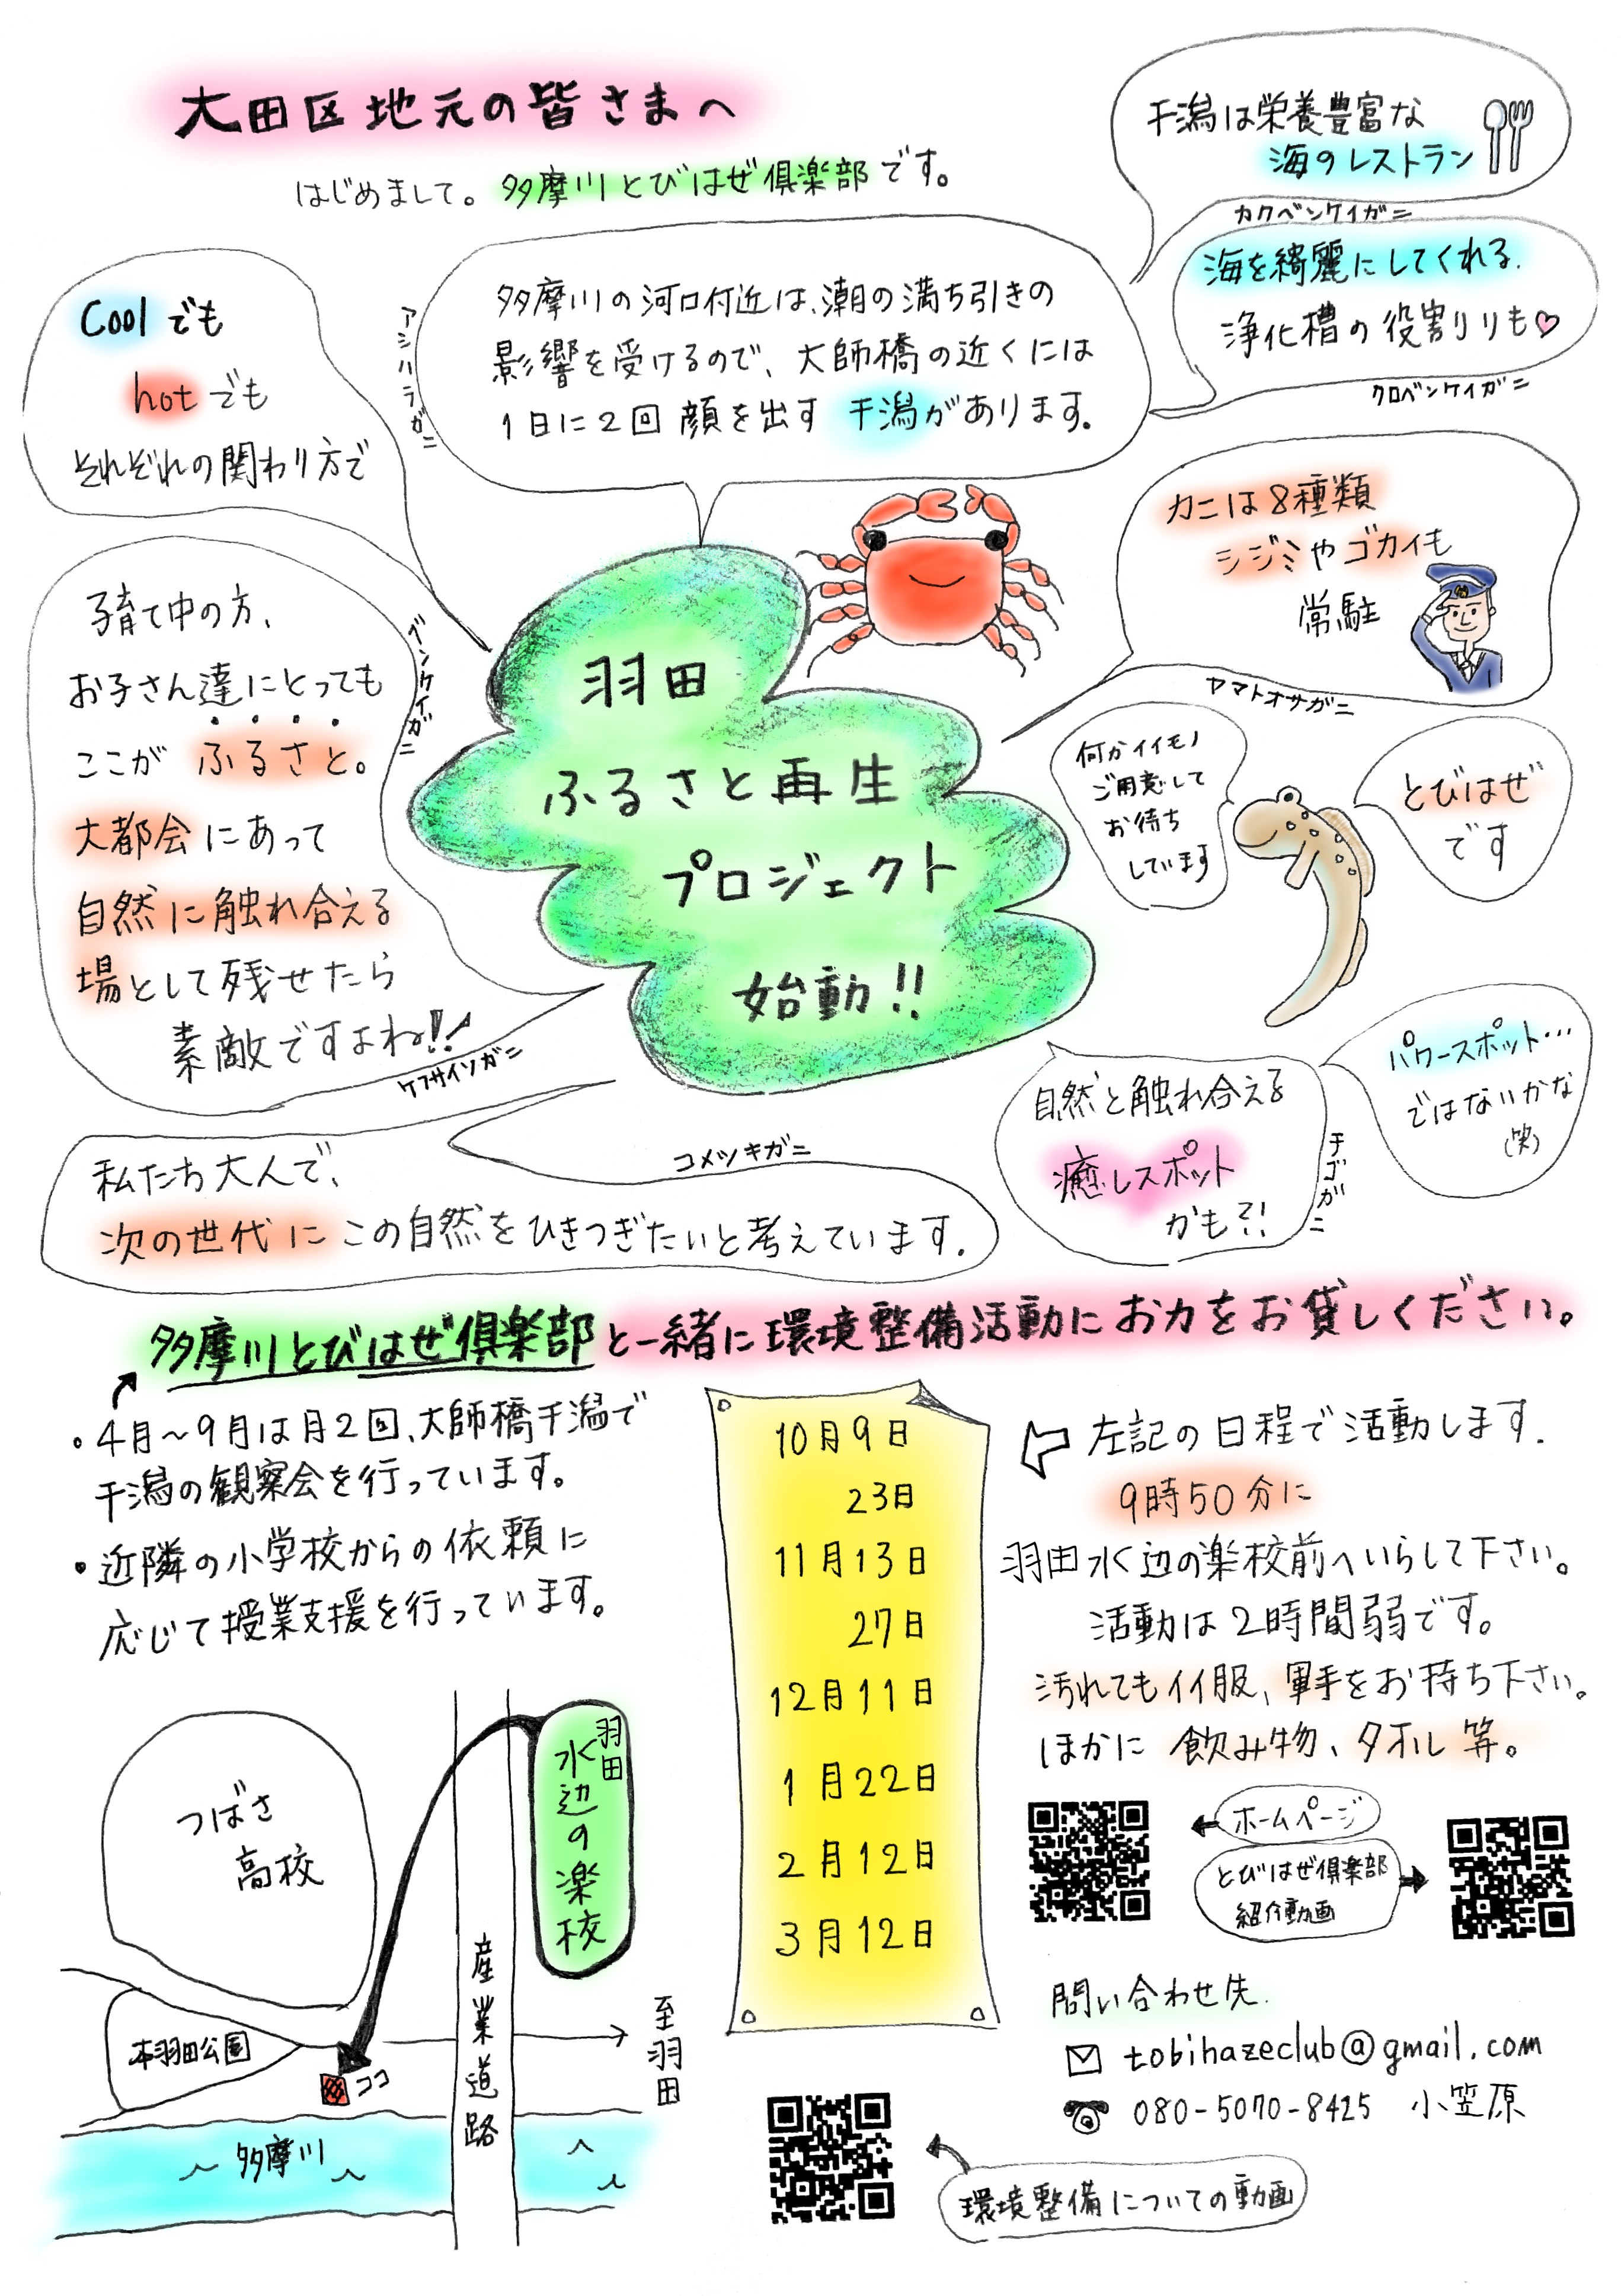 大田区地元の皆さまへ
はじめまして。多摩川とびはぜ倶楽部です。
干潟は栄養豊富な
海のレストラン
カクベンケイガニ
海を綺麗にしてくれる.
浄化槽の役割りも♡
クロベンケイガニ
多摩川の河口付近は、潮の満ち引きの
影響を受けるので、大師橋の近くには
1日に2回顔を出す 干潟があります。
アシハラガニ
Coolでも
hotでも
それぞれの関わり方で
カニは8種類
シジミやゴカイも
常駐
ヤマトオサガニ
子育て中の方、
お子さん達にとっても
ここが ふるさと。
大都会にあって
自然に触れ合える
場として残せたら
素敵ですよね!!
ベンケイガニ
ケフサイソガニ
羽田
ふるさと再生
プロジェクト
始動!!
何かイイモノ
ご用意して
お待ち
しています
とびはぜ
です
パワースポット…
ではないかな
(笑)
自然と触れ合える
癒しスポット
かも?!
チゴガニ
コメツキガニ
私たち大人で、
次の世代に この自然をひきつぎたいと考えています.
多摩川とびはぜ倶楽部と一緒に環境整備活動にお力をお貸しください。
・4月～9月は月2回、大師橋干潟で
干潟の観察会を行っています。
・近隣の小学校からの依頼に
応じて授業支援を行っています。
10月9日
23日
11月13日
27日
12月11日
1月22日
2月12日
3月12日
左記の日程で活動します.
9時50分に
羽田水辺の楽校前へいらして下さい。
活動は2時間弱です。
汚れてもイイ服、軍手をお持ち下さい。
ほかに 飲み物、タオル等。
ホームページ
とびはぜ倶楽部
紹介動画
問い合わせ先.
tobihazeclub@gmail.com
080-5070-8425 小笠原
環境整備についての動画
つばさ
高校
羽田
水辺の楽校
産業道路
至羽田
本羽田公園
ココ
多摩川